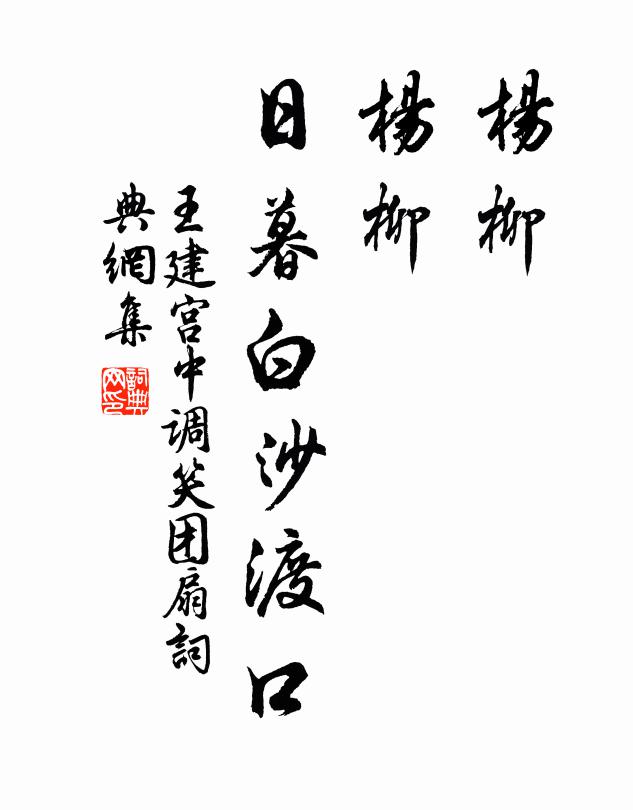 楊柳
楊柳
日暮白沙渡口
王建宫中调笑团扇詞
典網集
詞典网印